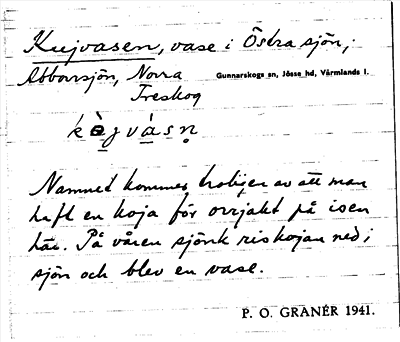 Kujvasen, vase i Östra sjön,
Abborrsjön, Norra Gunnarskogs sn, Jösse hd, Värmlands l.
Treskog
Namnet kommer troligen av att man
haft en koja för orrjakt på isen
här. På våren sjönk riskojan ned i
sjön och blev en vase.
P. O. GRANÉR 1941.